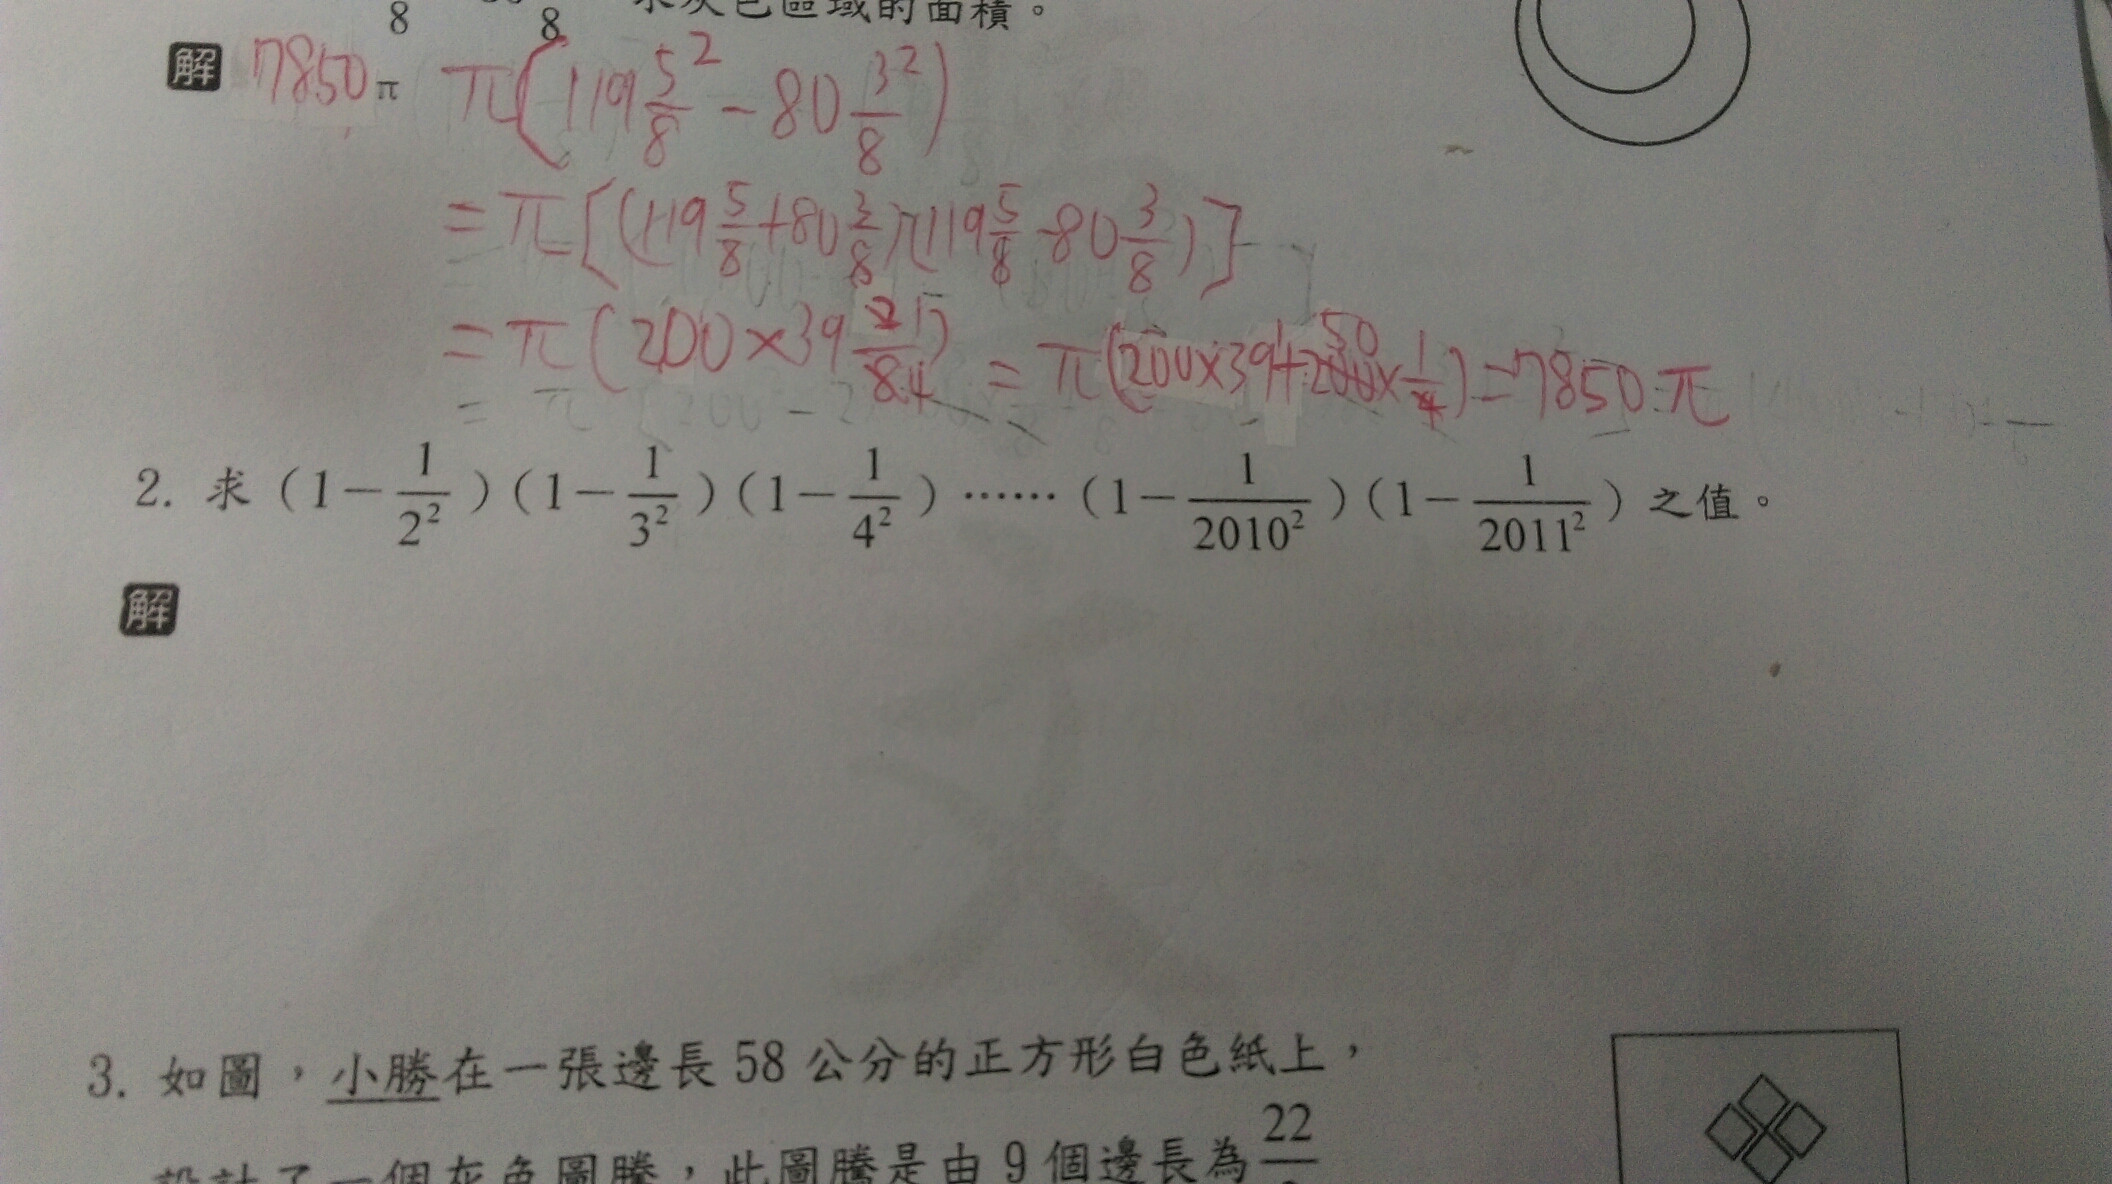 8 8 求灰色區域的面積。
解 7850π π(119 5/8² - 80 3/8²)
= π[(119 5/8 + 80 3/8)(119 5/8 - 80 3/8)]
= π(200×39 2/8 1/4) = π(200×39+200 50×1/4) = 7850π
2. 求(1-1/2²)(1-1/3²)(1-1/4²)……(1-1/2010²)(1-1/2011²)之值。
解
3. 如圖,小勝在一張邊長58公分的正方形白色紙上,
設計了一個灰色圖騰,此圖騰是由9個邊長為22